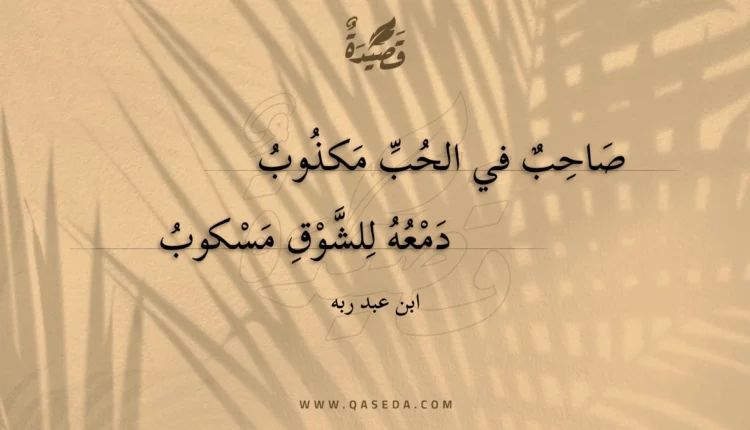 قَصِيْدَةٌ
صَاحِبٌ في الحُبِّ مَكذُوبُ
دَمْعُهُ لِلشَّوْقِ مَسْكوبُ
ابن عبد ربه
WWW.QASEDA.COM